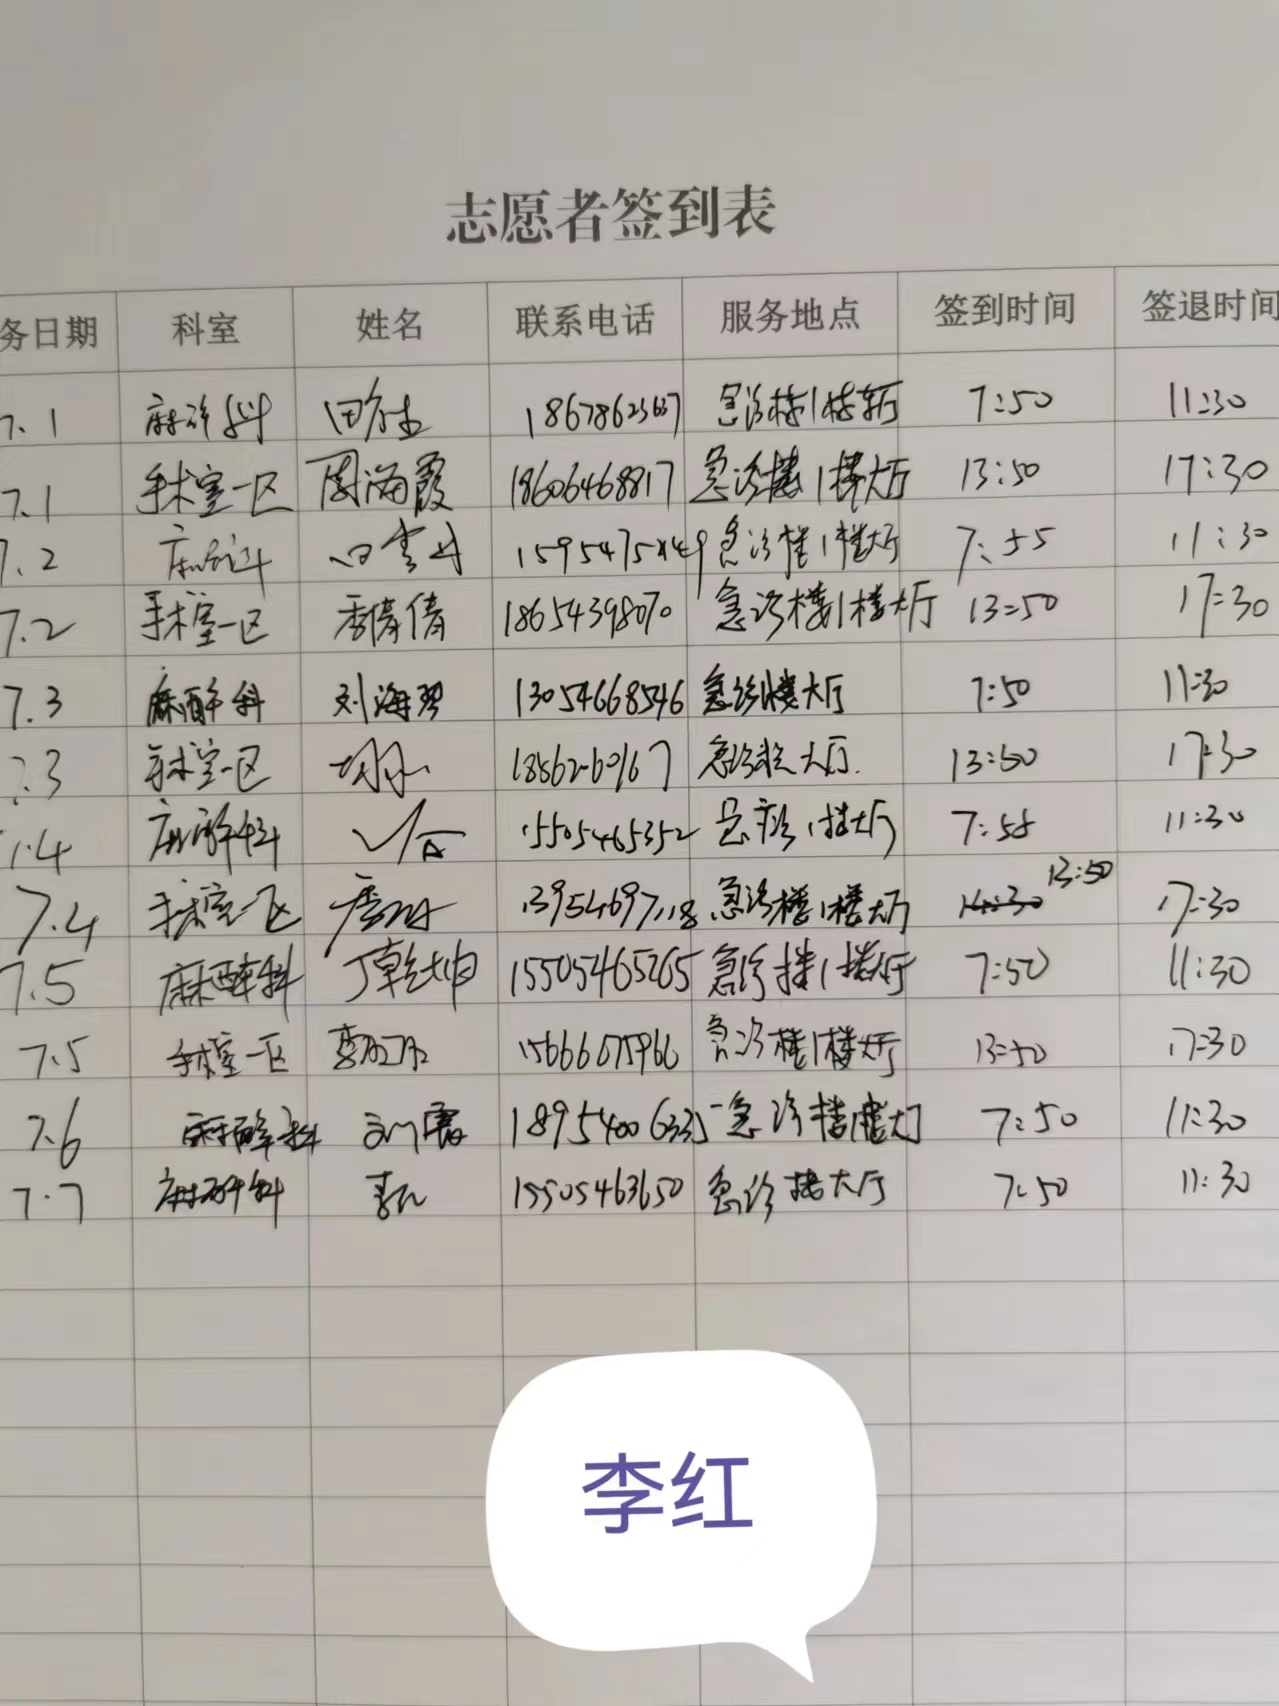 志愿者签到表
务日期 科室 姓名 联系电话 服务地点 签到时间 签退时间
7.1 麻醉科 急诊楼1楼大厅 7:50 11:30
7.1 手术室一区 周海霞 18606468817 急诊楼1楼大厅 13:50 17:30
7.2 麻醉科 急诊楼1楼大厅 7:55 11:30
7.2 手术室一区 李倩倩 18654398070 急诊楼1楼大厅 13:50 17:30
7.3 麻醉科 刘海 13054668546 急诊楼大厅 7:50 11:30
7.3 手术室一区 急诊楼大厅 13:50 17:30
7.4 麻醉科 15505465352 急诊1楼大厅 7:55 11:30
7.4 手术室一区 急诊楼1楼大厅 14:30 13:50 17:30
7.5 麻醉科 丁乾坤 15505465265 急诊楼1楼大厅 7:50 11:30
7.5 手术室一区 15666675966 急诊楼1楼大厅 13:50 17:30
7.6 麻醉科 刘霞 急诊楼1楼大厅 7:50 11:30
7.7 麻醉科 李红 15505463650 急诊楼大厅 7:50 11:30
李红